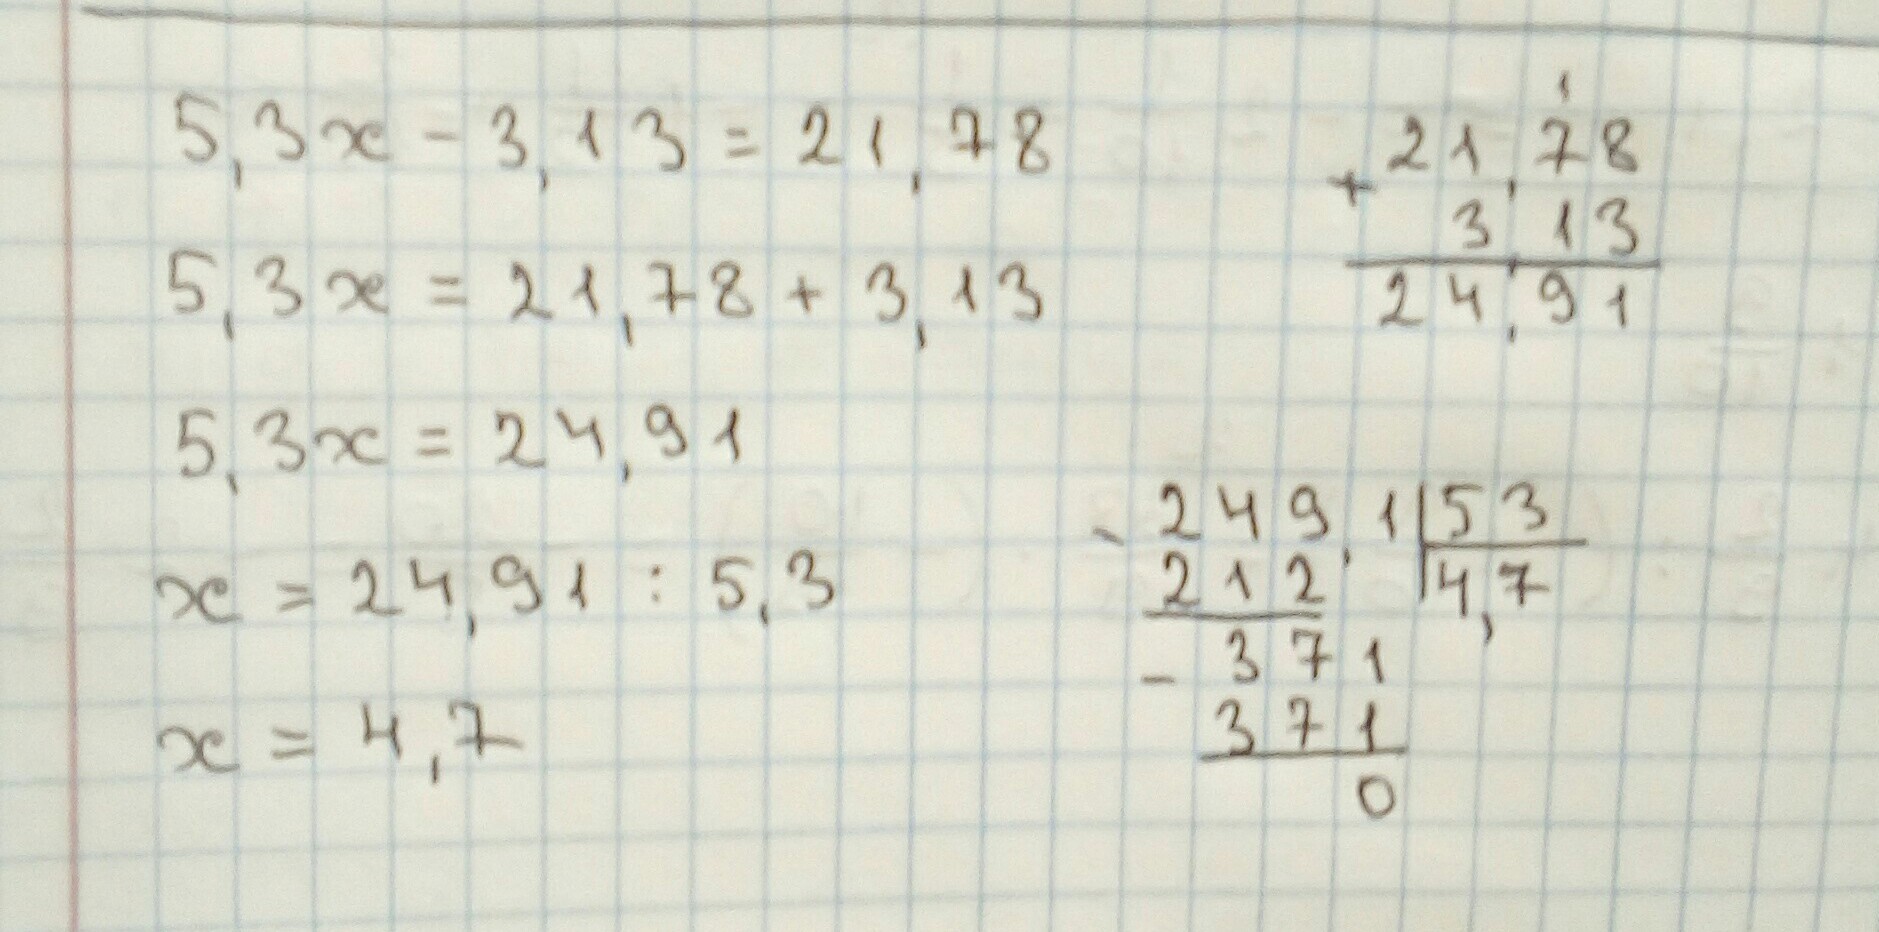 5,3x - 3,13 = 21,78
5,3x = 21,78 + 3,13
5,3x = 24,91
x = 24,91 : 5,3
x = 4,7
1
21,78
+
3,13
24,91
- 249,1 | 53
212 | 4,7
- 371
371
0